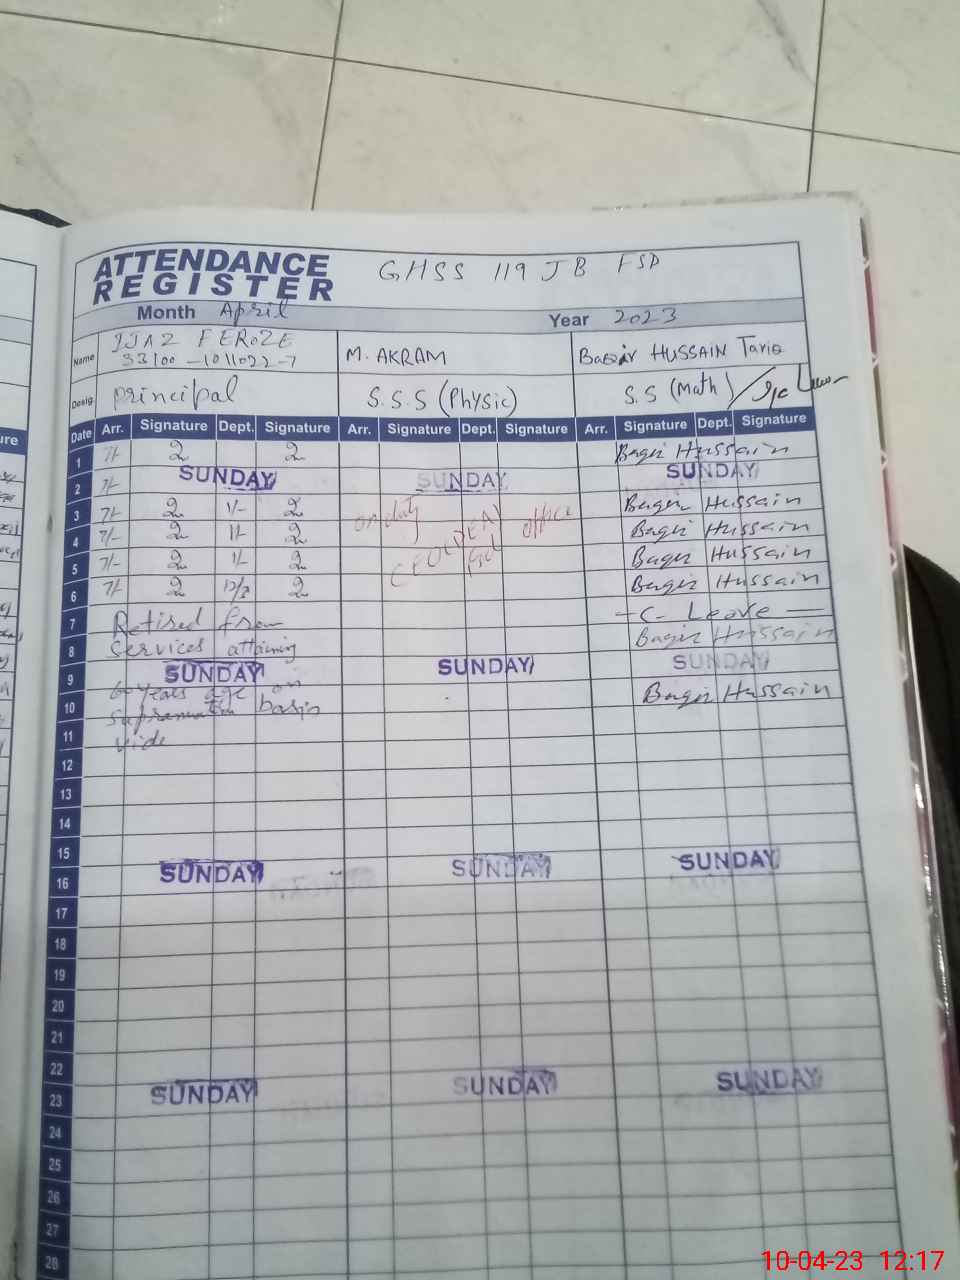 ATTENDANCE REGISTER GHSS 119 JB FSD
Month April Year 2023
Name IJAZ FEROZE M. AKRAM HUSSAIN Tariq
33100-1011022-7
Desig. Principal S.S.S (Physic) S.S (Math)
Date Arr. Signature Dept. Signature Arr. Signature Dept. Signature Arr. Signature Dept. Signature
1 7/- Baqir Hussain
2 7/- SUNDAY SUNDAY SUNDAY
3 7/- 1/- on duty office Baqir Hussain
4 7/- 1/- CEO (DEA) Baqir Hussain
5 7/- 1/- Fsd Baqir Hussain
6 7/- Baqir Hussain
7 Retired from - C. Leave -
8 Services attaining Baqir Hussain
9 SUNDAY SUNDAY SUNDAY
10 60 years age on Baqir Hussain
basis
11 vide
12
13
14
15
16 SUNDAY SUNDAY SUNDAY
17
18
19
20
21
22
23 SUNDAY SUNDAY SUNDAY
24
25
26
27
28
10-04-23 12:17